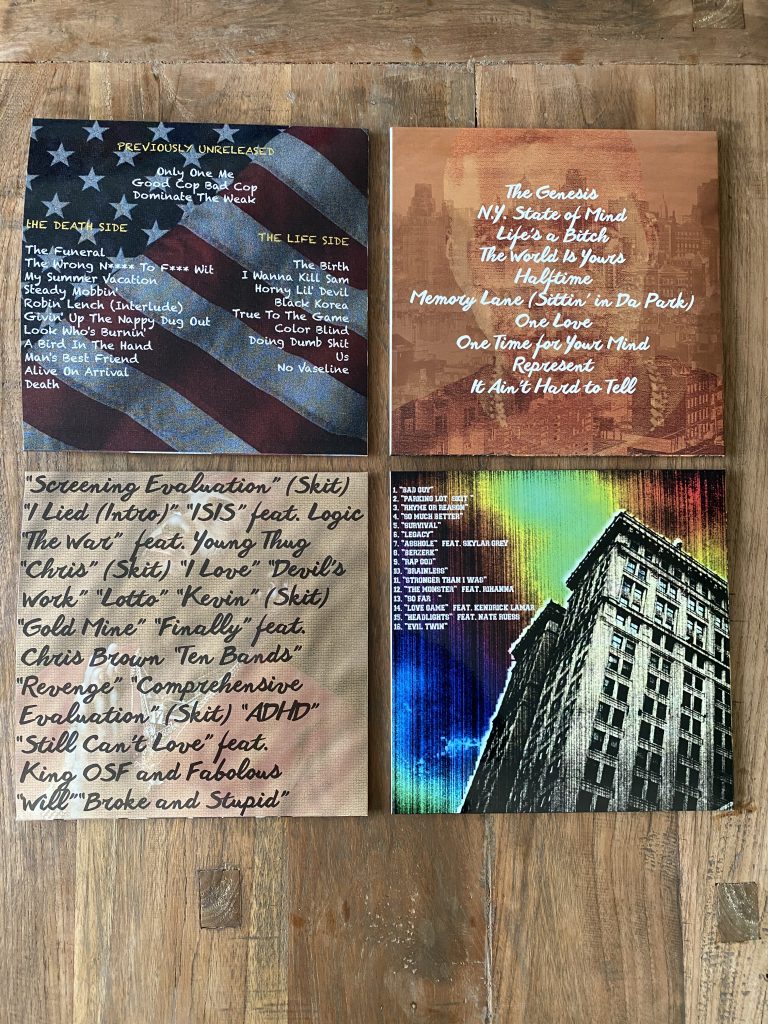 PREVIOUSLY UNRELEASED
Only One Me
Good Cop Bad Cop
Dominate The Weak
THE DEATH SIDE
The Funeral
The Wrong N**** To F*** Wit
My Summer Vacation
Steady Mobbin'
Robin' Lench (Interlude)
Givin' Up The Nappy Dug Out
Look Who's Burnin'
A Bird In The Hand
Man's Best Friend
Alive On Arrival
Death
THE LIFE SIDE
The Birth
I Wanna Kill Sam
Horny Lil' Devil
Black Korea
True To The Game
Color Blind
Doing Dumb Shit
Us
No Vaseline
The Genesis
N.Y. State of Mind
Life's a Bitch
The World Is Yours
Halftime
Memory Lane (Sittin' in Da Park)
One Love
One Time for Your Mind
Represent
It Ain't Hard to Tell
"Screening Evaluation" (Skit)
"I Lied (Intro)" "ISIS" feat. Logic
"The War" feat. Young Thug
"Chris" (Skit) "I Love" "Devil's
Work" "Lotto" "Kevin" (Skit)
"Gold Mine" "Finally" feat.
Chris Brown "Ten Bands"
"Revenge" "Comprehensive
Evaluation" (Skit) "ADHD"
"Still Can't Love" feat.
King OSF and Fabolous
"Will" "Broke and Stupid"
1. "BAD GUY"
2. "PARKING LOT SKIT "
3. "RHYME OR REASON"
4. "SO MUCH BETTER"
5. "SURVIVAL"
6. "LEGACY"
7. "ASSHOLE" FEAT. SKYLAR GREY
8. "BERZERK"
9. "RAP GOD"
10. "BRAINLESS"
11. "STRONGER THAN I WAS"
12. "THE MONSTER" FEAT. RIHANNA
13. "SO FAR "
14. "LOVE GAME" FEAT. KENDRICK LAMAR
15. "HEADLIGHTS" FEAT. NATE RUESS
16. "EVIL TWIN"